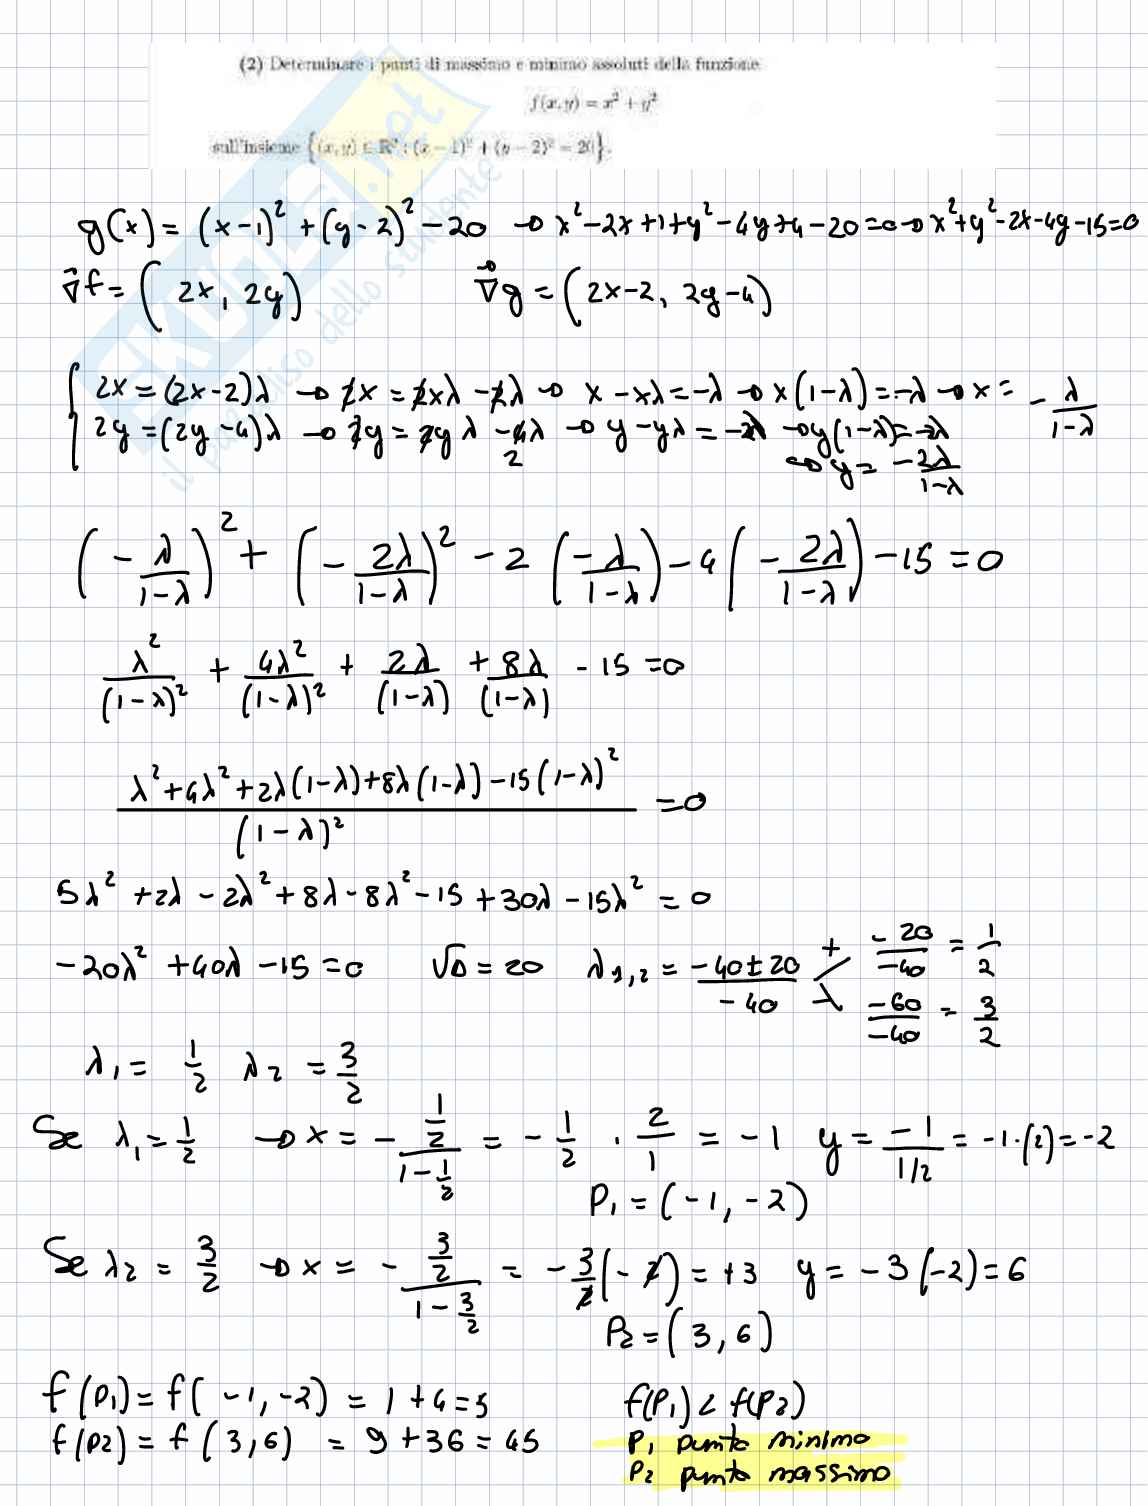 (2) Determinare i punti di massimo e minimo assoluti della funzione
f(x, y) = x² + y²
sull'insieme {(x, y) ∈ ℝ² : (x − 1)² + (y − 2)² = 20}.
SKUOLA.net
il paradiso dello studente
g(x) = (x-1)² + (y-2)² - 20 → x² - 2x + 1 + y² - 4y + 4 - 20 = 0 → x² + y² - 2x - 4y - 15 = 0
∇f = (2x, 2y) ∇g = (2x-2, 2y-4)
{ 2x = (2x-2)λ → 2x = 2xλ - 2λ → x - xλ = -λ → x(1-λ) = -λ → x = - λ/(1-λ)
2y = (2y-4)λ → 2y = 2yλ - 4λ → y - yλ = -2λ → y(1-λ) = -2λ
2
→ y = -2λ/(1-λ)
(- λ/(1-λ))² + (- 2λ/(1-λ))² - 2(-λ/(1-λ)) - 4(- 2λ/(1-λ)) - 15 = 0
λ²/(1-λ)² + 4λ²/(1-λ)² + 2λ/(1-λ) + 8λ/(1-λ) - 15 = 0
(λ² + 4λ² + 2λ(1-λ) + 8λ(1-λ) - 15(1-λ)²)/(1-λ)² = 0
5λ² + 2λ - 2λ² + 8λ - 8λ² - 15 + 30λ - 15λ² = 0
-20λ² + 40λ - 15 = 0 √Δ = 20 λ1,2 = (-40 ± 20)/-40 + -20/-40 = 1/2
- -60/-40 = 3/2
λ1 = 1/2 λ2 = 3/2
Se λ1 = 1/2 → x = - (1/2)/(1 - 1/2) = - 1/2 · 2/1 = -1 y = -1/(1/2) = -1·(2) = -2
P1 = (-1, -2)
Se λ2 = 3/2 → x = - (3/2)/(1 - 3/2) = - 3/2 (-2) = +3 y = -3(-2) = 6
P2 = (3, 6)
f(P1) = f(-1, -2) = 1 + 4 = 5 f(P1) < f(P2)
f(P2) = f(3, 6) = 9 + 36 = 45 P1 punto minimo
P2 punto massimo